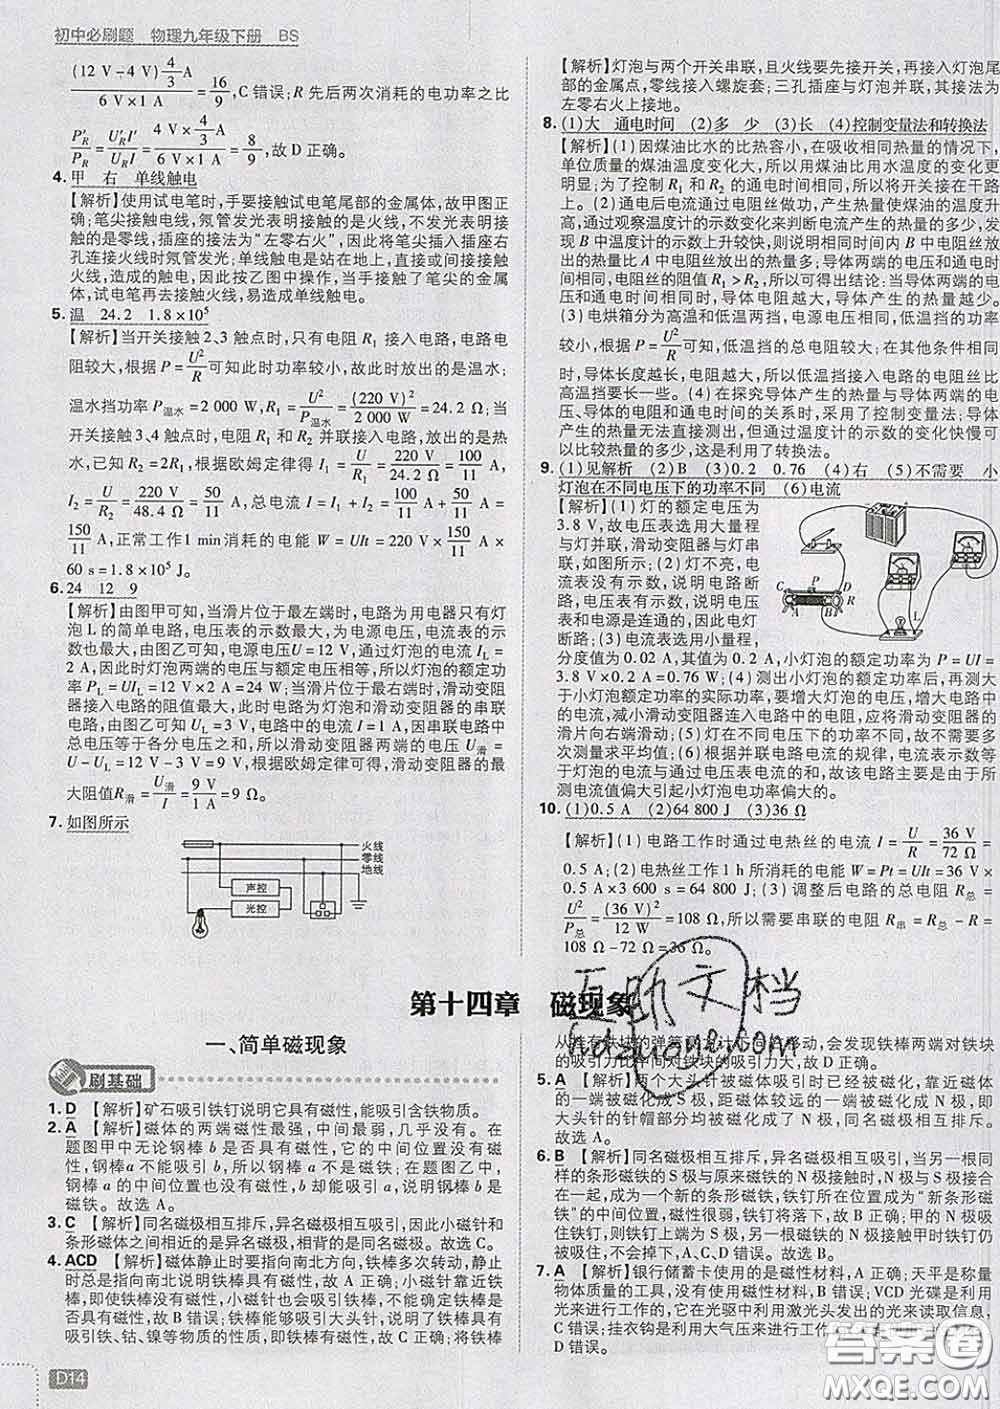 初中必刷题 物理九年级下册 BS
(12 V-4 V)4/3 A / 6 V×1 A = 16/9, C 错误; R 先后两次消耗的电功率之比
P′R/PR = U′R I′/UR I = 4 V×4/3 A / 6 V×1 A = 8/9, 故 D 正确。
4. 甲 右 单线触电
【解析】使用试电笔时,手要接触试电笔尾部的金属体,故甲图正
确;笔尖接触电线,氖管发光表明接触的是火线,不发光表明接触
的是零线,插座的接法为“左零右火”,因此将笔尖插入插座右
孔连接火线时氖管发光;单线触电是站在地上,直接或间接接触
火线,造成的触电,因此按乙图中操作,当手接触了笔尖的金属
体,试电笔再去接触火线,易造成单线触电。
5. 温 24.2 1.8×10⁵
【解析】当开关接触2、3触点时,只有电阻 R₁ 接入电路,电路电
阻较大,根据 P=U²/R 可知此时功率较小,故此时放出的是温水;
温水挡功率 P温水=2 000 W, R₁=U²/P温水=(220 V)²/2 000 W=24.2 Ω;当
开关接触3、4触点时,电阻 R₁ 和 R₂ 并联接入电路,放出的是热
水,已知 R₂=2R₁,根据欧姆定律得 I₁=U/R₁=220 V/24.2 Ω=100/11 A,
I₂=U/R₂=220 V/48.4 Ω=50/11 A,总电流 I=I₁+I₂=100/11 A+50/11 A=
150/11 A,正常工作1 min消耗的电能 W=UIt=220 V×150/11 A×
60 s=1.8×10⁵ J。
6. 24 12 9
【解析】由图甲可知,当滑片位于最左端时,电路为用电器只有灯
泡 L 的简单电路,电压表的示数最大,为电源电压,电流表的示
数也最大,由图乙可知,电源电压U=12 V,通过灯泡的电流 IL=
2 A,因此时灯泡两端的电压与额定电压相等,所以灯泡的额定功
率 PL=UIL=12 V×2 A=24 W;当滑片位于最右端时,滑动变阻
器接入电路的阻值最大,此时电路为灯泡和滑动变阻器的串联
电路,由图乙可知 UL=3 V,电路中的电流 I=1 A,因串联电路中
总电压等于各分电压之和,所以滑动变阻器两端的电压 U滑=
U-UL=12 V-3 V=9 V,由欧姆定律可得,滑动变阻器的最
大阻值R滑=U滑/I=9 V/1 A=9 Ω。
7. 如图所示
火线
零线
地线
声控
光控
【解析】灯泡与两个开关串联,且火线要先接开关,再接入灯泡尾
部的金属点,零线接入螺旋套;三孔插座与灯泡并联,其接法为
左零右火上接地。
8. (1)大 通电时间 (2)多 少 (3)长 (4)控制变量法和转换法
【解析】(1)因煤油比水的比热容小,在吸收相同热量的情况下,
单位质量的煤油温度变化大,所以用煤油比用水温度的变化更
明显;为了控制 R₁ 和 R₂ 的通电时间相同,所以将开关接在干路
上。(2)通电后电流通过电阻做功,产生热量使煤油的温度升
高,通过观察温度计的示数变化来判断电流产生的热量的多少,发
现 B 中温度计的示数上升较快,则说明相同时间内 B 中电阻丝放
出的热量比 A 中电阻丝放出的热量多;导体两端的电压和通电时
间相同,电阻丝的阻值 R₁>R₂,所以,导体两端的电压和通电时
间相同时,导体电阻越大,导体产生的热量越少。
(3)电烘箱分为高温和低温两挡,电源电压相同,低温挡的功率
较小,根据 P=U²/R 可知,低温挡的总电阻较大;在其他条件相同
时,导体长度越长,电阻越大,所以低温挡接入电路的电阻丝比
高温挡要长一些。(4)在探究导体产生的热量与导体两端的电
压、导体的电阻和通电时间的关系时,采用了控制变量法;导体
产生的热量无法直接测出,但通过温度计的示数的变化快慢可
以比较热量的多少,这是利用了转换法。
9. (1)见解析 (2)B (3)0.2 0.76 (4)右 (5)不需要 小
灯泡在不同电压下的功率不同 (6)电流
【解析】(1)灯的额定电压为
3.8 V,故电压表选用大量程
与灯并联,滑动变阻器与灯串
联,如图所示;(2)灯不亮,电
流表没有示数,说明电路断
路,电压表有示数,说明电压
表与电源是连通的,因此电灯
断路;(3)电流表选用小量程,
分度值为 0.02 A,其示数为 0.2 A,小灯泡的额定功率为 P=UI=
3.8 V×0.2 A=0.76 W;(4)测出小灯泡的额定功率后,再测大
于小灯泡额定功率的实际功率,要增大灯泡的电压,增大电路中
的电流,减小滑动变阻器连入电路中的电阻,应将滑动变阻器的
滑片向右端滑动;(5)灯在不同电压下的功率不同,故不需要多
次测量求平均值;(6)根据并联电路电流的规律,电流表示数等
于灯泡的电流与通过电压表电流的和,故该电路图主要是由于所
测电流值偏大引起小灯泡电功率偏大的。
P
C D
A B R
L
10. (1)0.5 A (2)64 800 J (3)36 Ω
【解析】(1)电路工作时通过电热丝的电流 I=U/R=36 V/72 Ω=
0.5 A;(2)电热丝工作1 h所消耗的电能 W=Pt=UIt=36 V×
0.5 A×3 600 s=64 800 J;(3)调整后电路的总电阻 R总=
U²/P总=(36 V)²/12 W=108 Ω,所以需要串联的电阻 R串=R总-R=
108 Ω-72 Ω=36 Ω。
第十四章 磁现象
一、简单磁现象
刷基础
1. D 【解析】矿石吸引铁钉说明它具有磁性,能吸引含铁物质。
2. A 【解析】磁体的两端磁性最强,中间最弱,几乎没有。在
题图甲中无论钢棒 b 是否具有磁性,它的中间位置没有磁
性,钢棒a不能吸引b,所以钢棒 a 不是磁铁;在题图乙中,
钢棒a的中间位置也没有磁性,b却能吸引a,说明 b 是磁
铁。故选 A。
3. C 【解析】同名磁极相互排斥,异名磁极相互吸引,因此小磁针和
条形磁体之间相近的是异名磁极,相背的是同名磁极。故选 C。
4. ACD 【解析】磁体静止时要指向南北方向,铁棒多次转动,静止
时总是指向南北说明铁棒具有磁性,故 A 正确;小磁针靠近铁
棒,即使铁棒没有磁性,小磁针也会吸引铁棒,不能确定铁棒是
否有磁性,故 B 错误;铁棒能吸引大头针,说明了铁棒具有
吸引铁、钴、镍等物质的性质,即铁棒有磁性,故 C 正确;将铁棒
从挂有铁块的弹簧测力计下向右移动,会发现铁棒两端对铁块
的吸引力比中间对铁块的吸引力大,说明铁棒有磁性,故 D 正确。
5. A 【解析】两个大头针被磁体吸引时已经被磁化,靠近磁体
的一端被磁化成 S 极,距磁体较远的一端被磁化成 N 极,即大
头针的针帽部分均被磁化成了 N 极,同名磁极相互排斥。
故选 A。
6. B 【解析】同名磁极相互排斥,异名磁极相互吸引,当另一根同
样的条形磁铁的 S 极与原来磁铁的 N 极接触时,此时两个条形
磁铁成为一个新的条形磁铁,铁钉所在的位置成为“新条形磁
铁”的中间位置,磁性很弱,铁钉受到的吸引力变小;甲的 N 极吸
住铁钉,则铁钉上端为 S 极,下端为 N 极,与乙的 S 极接触时铁钉仍
被吸住,不会落下,A、C、D 错误。故选 B。
7. A 【解析】银行储蓄卡使用的是磁性材料,A 正确;天平是称量
物体质量的工具,没有使用磁性材料,B 错误;VCD 光碟是利用
光来进行工作的,它在光驱中利用激光头发出的光来读取信息,
C 错误;挂衣钩是利用大气压来进行工作
D14
互助文档
hdzuoye.com
答案圈
MXQE.COM